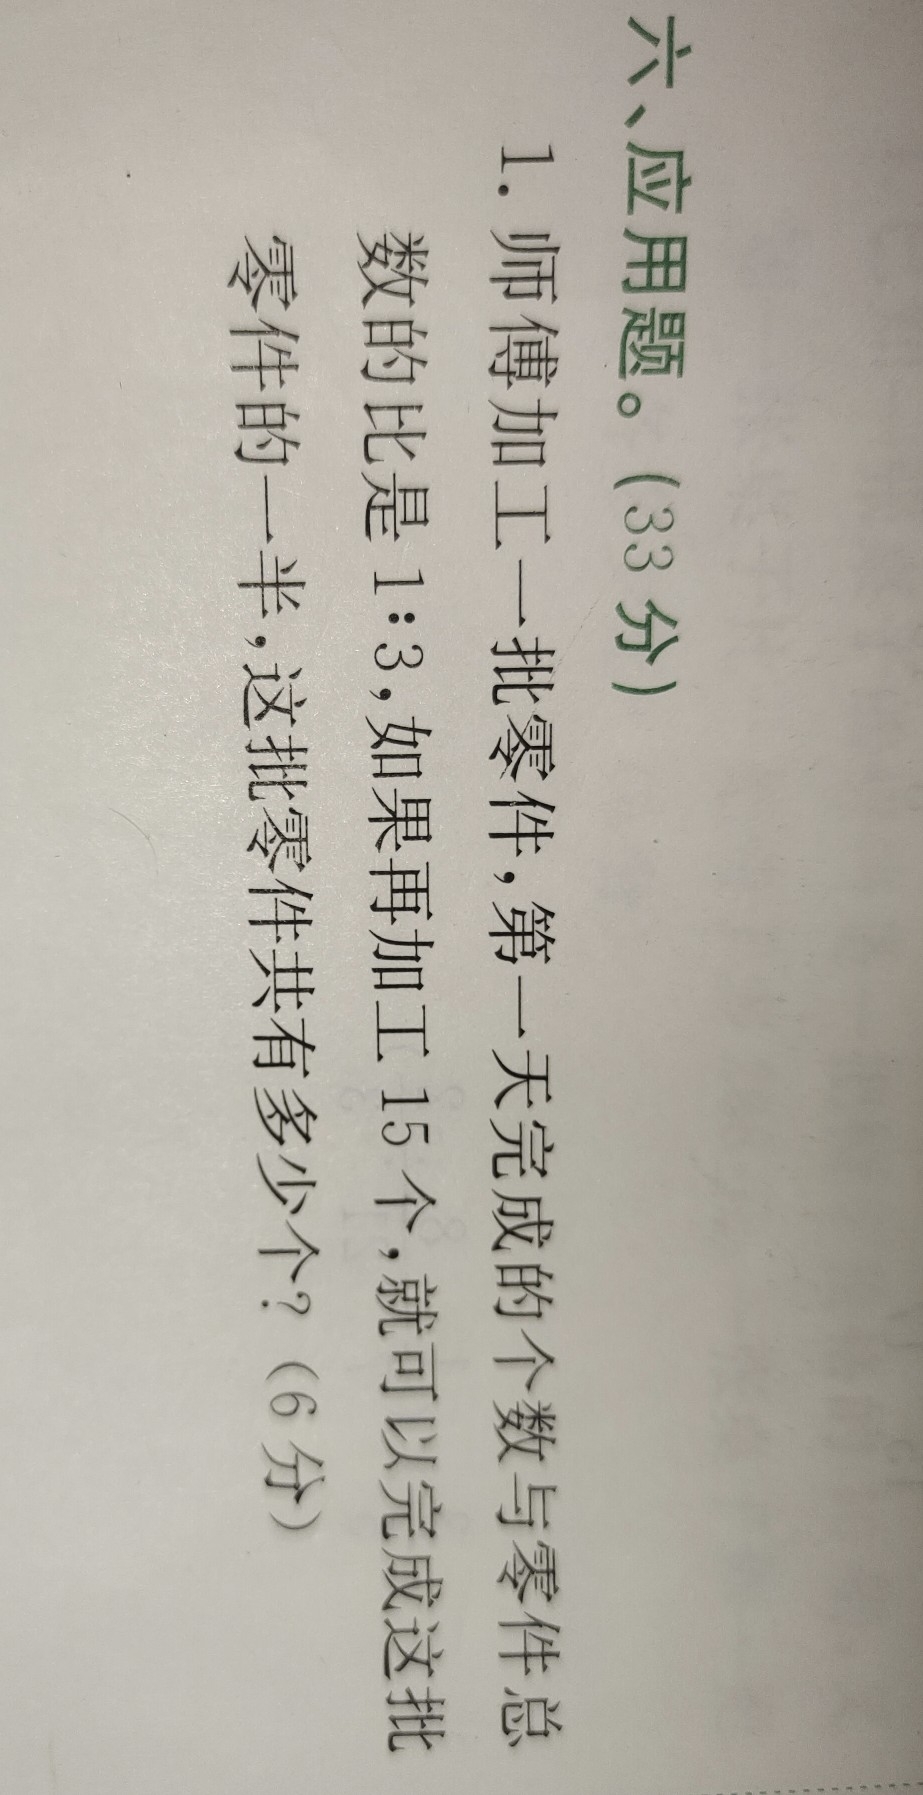 六、应用题。(33 分)
1. 师傅加工一批零件,第一天完成的个数与零件总
数的比是 1:3,如果再加工 15 个,就可以完成这批
零件的一半,这批零件共有多少个?(6 分)